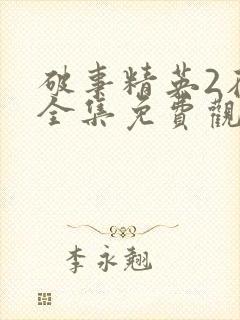 破事精英2
全集免費觀
李永翹